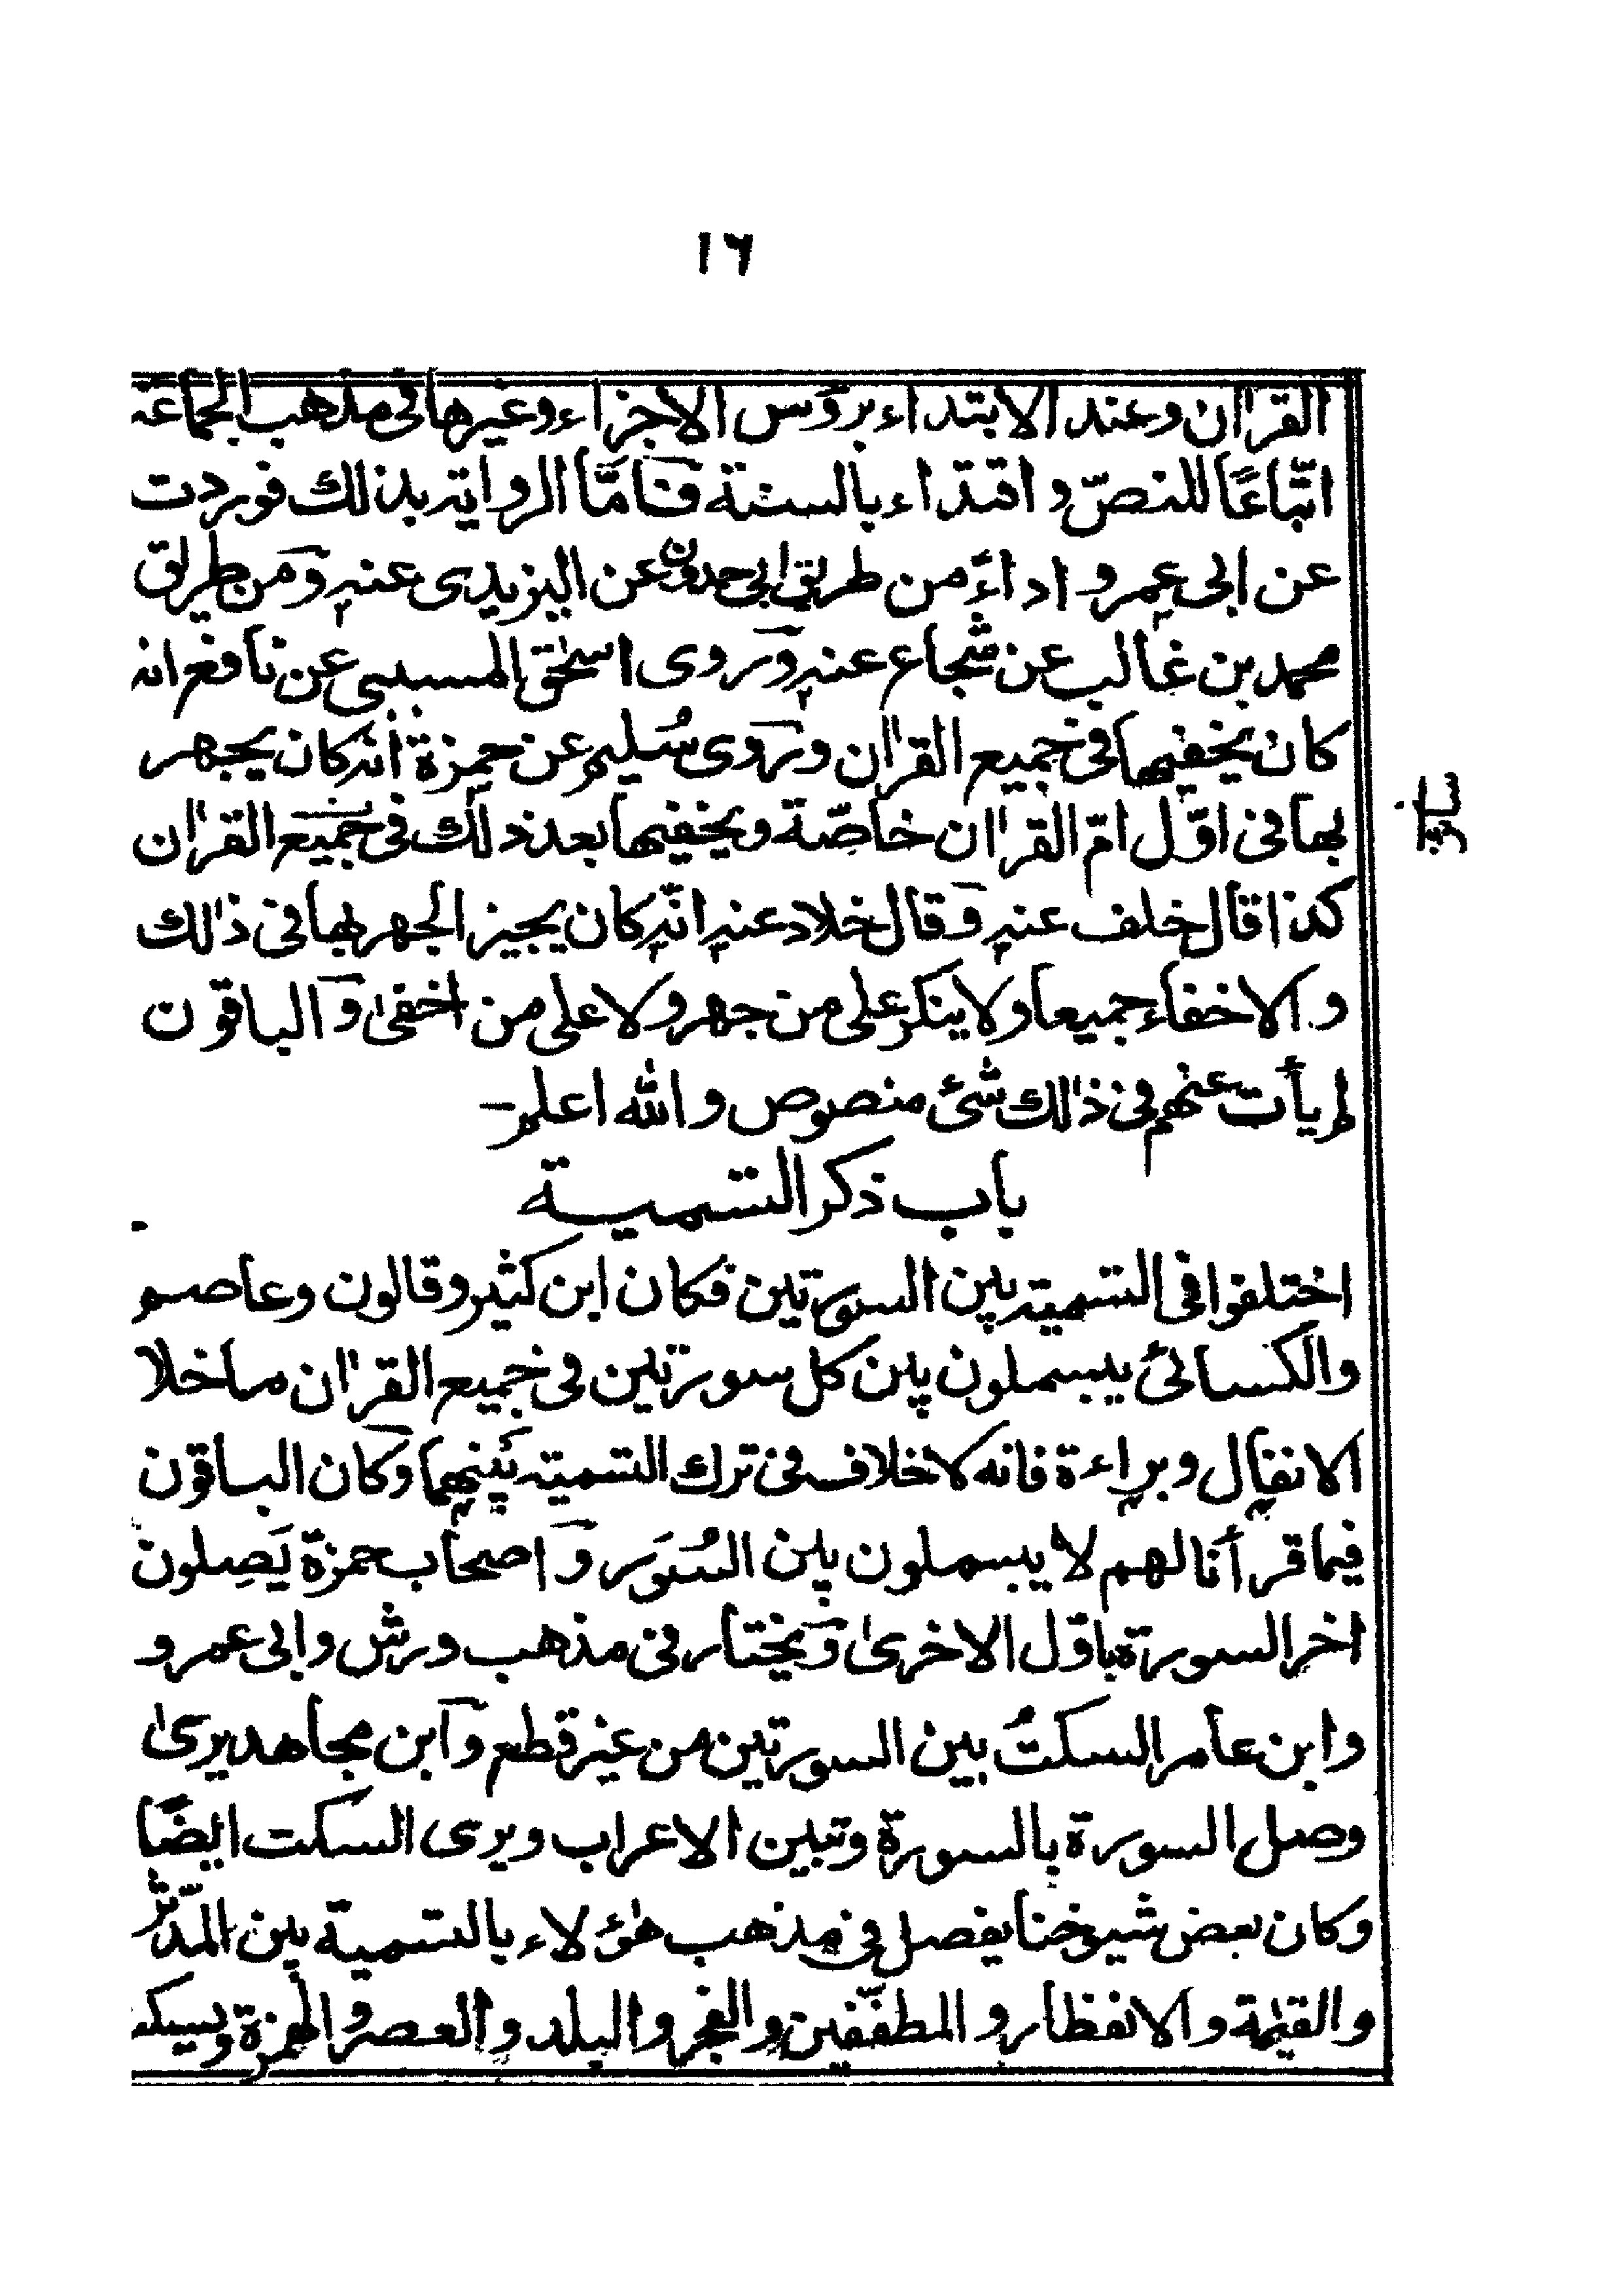 ١٦
القراٰن وعند الابتداء برؤس الاجزاء وغيرها فى مذهب الجماعة
اتّباعًا للنصّ واقتداء بالسنة فامّا الرواية بذلك فوردت
عن ابى عمرو اداءً من طريق ابى حمدون عن اليزيدى عنه ومن طريق
محمد بن غالب عن شجاع عنه وروى اسحٰق المسيبى عن نافع انه
كان يخفيها فى جميع القراٰن وروى سُليم عن حمزة انه كان يجهر
بها فى اوّل امّ القراٰن خاصّة ويخفيها بعد ذٰلك فى جميع القراٰن
كذا قال خلف عنه وقال خلاد عنه انّه كان يجيز الجهر بها فى ذٰلك
والاخفاء جميعا ولا ينكر على من جهر ولا على من اخفىٰ والباقون
لم يأت عنهم فى ذٰلك شئ منصوص والله اعلم-
باب ذكر التسمية
اختلفوا فى التسمية بين السورتين فكان ابن كثير وقالون وعاصم
والكسائى يبسملون بين كل سورتين فى جميع القراٰن ما خلا
الانفال وبراءة فانه لا خلاف فى ترك التسمية بينهما وكان الباقون
فيما قرأنا لهم لا يبسملون بين السُوَر واصحاب حمزة يَصِلون
اخر السورة باوّل الاخرىٰ ويختار فى مذهب ورش وابى عمرو
وابن عامر السكتُ بين السورتين من غير قطع وابن مجاهد يرىٰ
وصل السورة بالسورة وتبين الاعراب ويرى السكت ايضًا
وكان بعض شيوخنا يفصل فى مذهب هٰؤلاء بالتسمية بين المدّثر
والقيٰمة والانفطار والمطفّفين والفجر والبلد والعصر والهمزة ويسكت